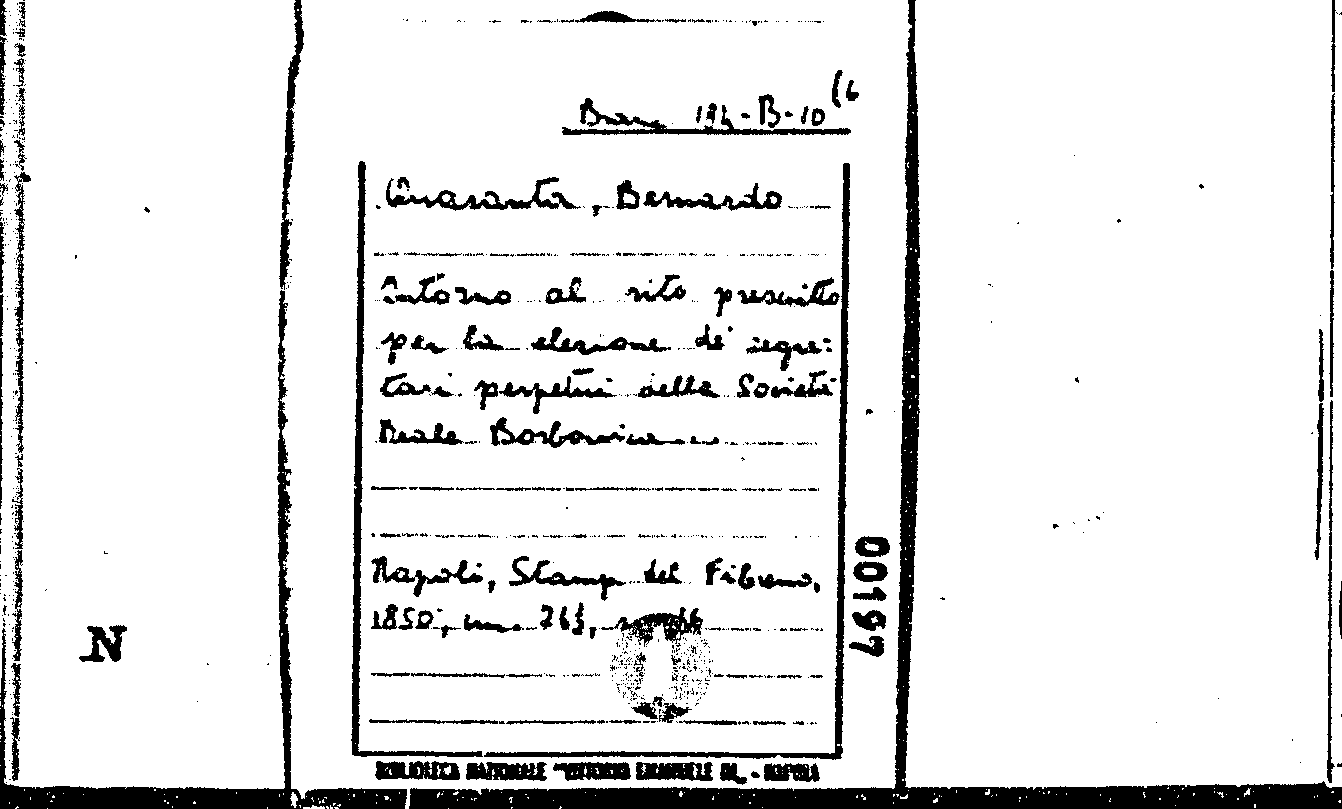 Branc 194-B-10(6
Quaranta, Bernardo
Intorno al rito prescritto
per la elezione de' segre:
tari perpetui della Società
Reale Borbonica
Napoli, Stamp del Fibreno,
1850, cm.
00197
N
BIBLIOTECA NAZIONALE "VITTORIO EMANUELE III" - NAPOLI